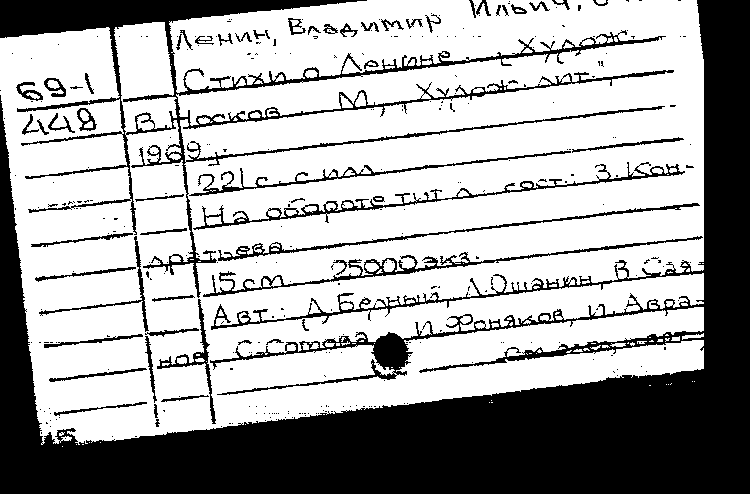 Ленин, Владимир Ильич, о
69-1 Стихи о Ленине. [Худож.
449 В. Носков М., „Худож. лит.",
1969 г.
221 с. с илл.
На обороте тит. л. сост.: З. Кон-
дратьева
15 см 25000 экз.
Авт.: Д. Бедный, Л. Ошанин, В. Сая-
нов, С. Сотова И. Фоняков, И. Авра-
См. след. карт.
15